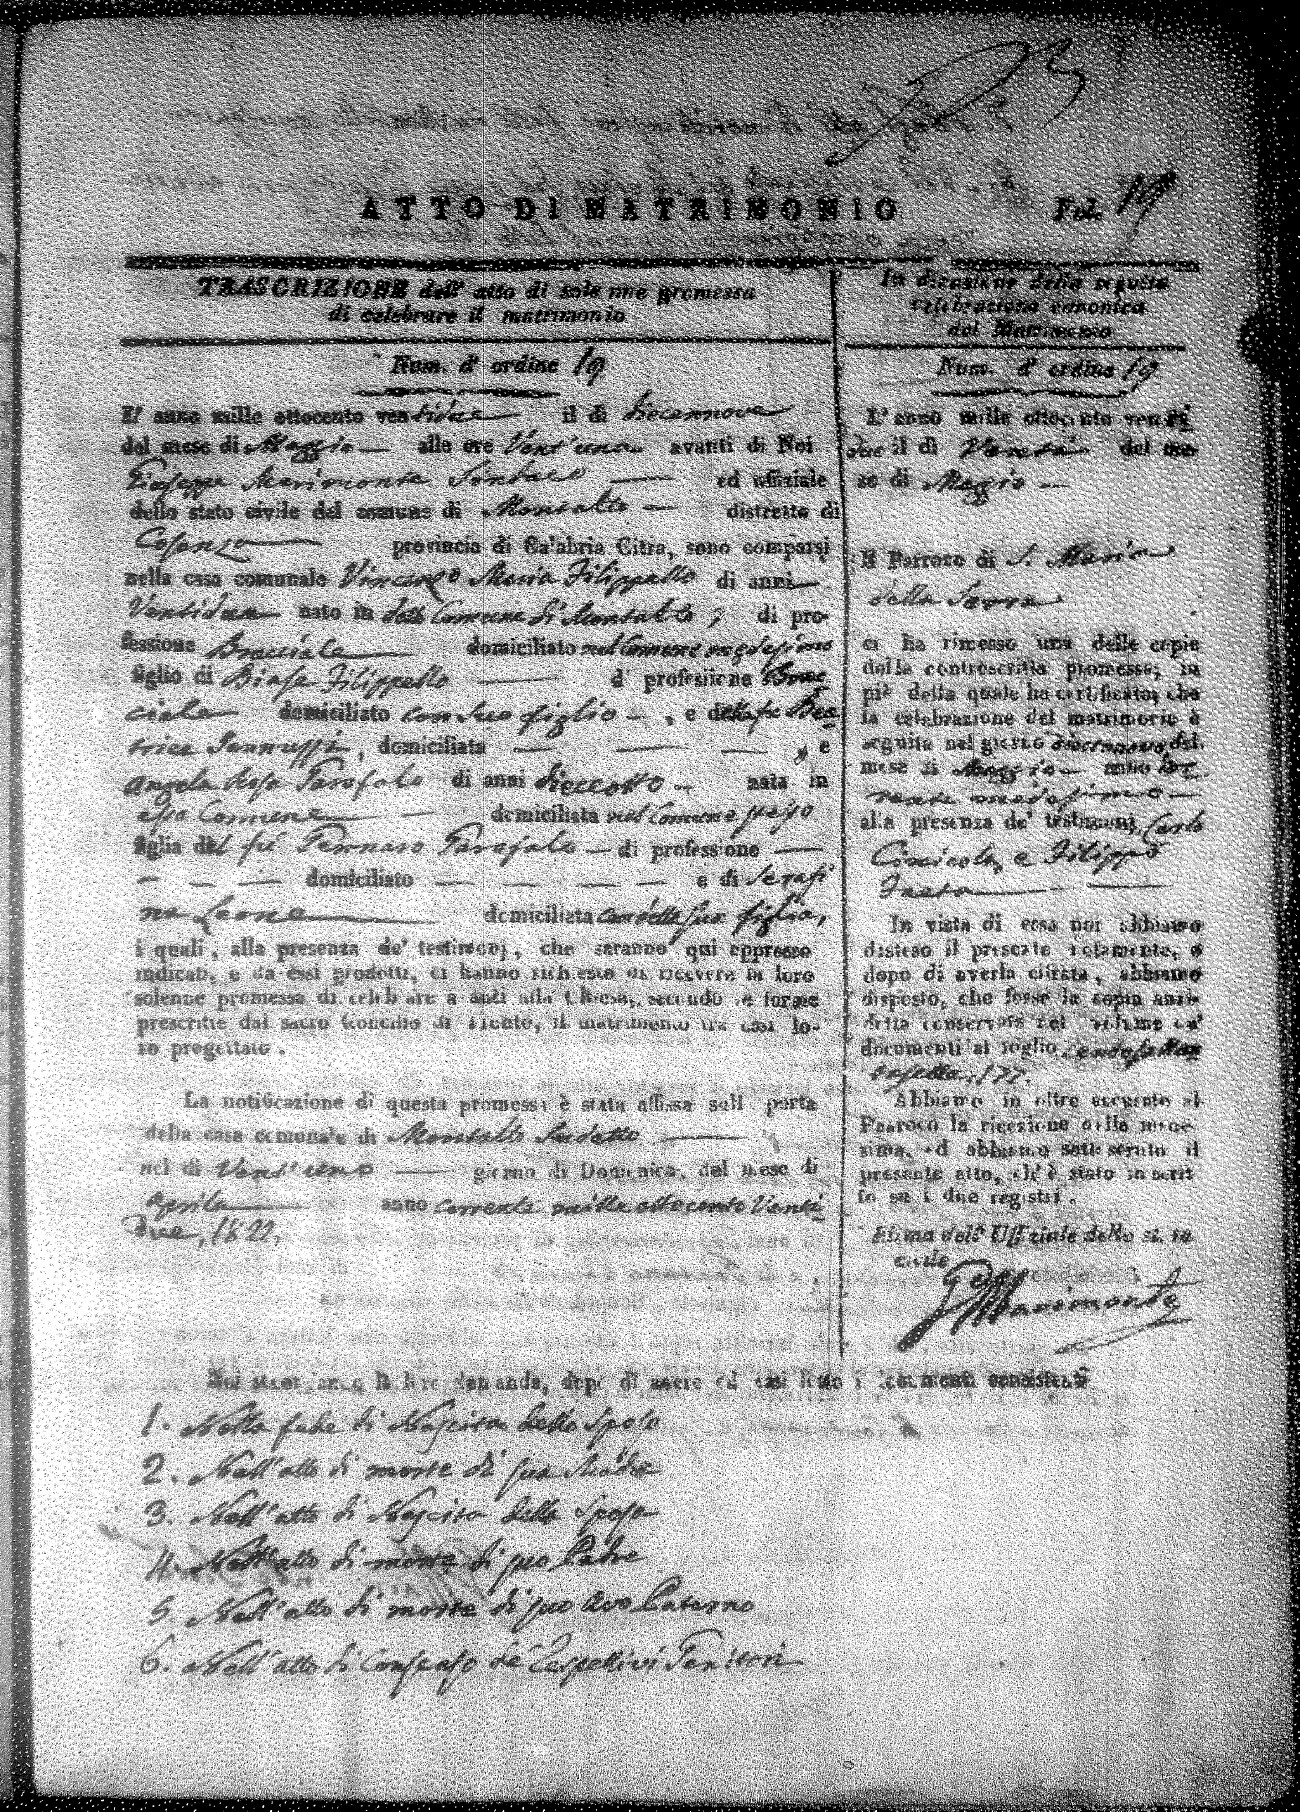 ATTO DI MATRIMONIO Fol. 19
TRASCRIZIONE dell' atto di solenne promessa
di celebrare il matrimonio
Num. d' ordine 19
L' anno mille ottocento ventidue il di diecennove
del mese di Maggio alle ore Vent'una avanti di Noi
Giuseppe Marimonte Sindaco ed uffiziale
dello stato civile del comune di Montalto distretto di
Cosenza provincia di Calabria Citra, sono comparsi
nella casa comunale Vincenzo Maria Filippello di anni
Ventidue nato in detto Comune di Montalto; di pro-
fessione Bracciale domiciliato nel Comune medesimo
figlio di Biase Filippello di professione Brac
ciale domiciliato con suo figlio, e della fu Bea
trice Iannuzzi, domiciliata , e
Angela Rosa Garofalo di anni dieciotto nata in
esso Comune domiciliata nel Comune stesso
figlia del fu Gennaro Garofalo di professione
domiciliato e di Serafi
na Leone domiciliata con detta sua figlia,
i quali, alla presenza de' testimonj, che saranno qui appresso
indicati, e da essi prodotti, ci hanno richiesto di ricevere la loro
solenne promessa di celebrare avanti alla Chiesa, secondo le forme
prescritte dal sacro Concilio di Trento, il matrimonio tra essi lo-
ro progettato.
La notificazione di questa promessa è stata affissa sull porta
della casa comunale di Montalto sudetto
nel di Vent'uno giorno di Domenica, del mese di
Aprile anno corrente mille ottocento Venti
due, 1822,
In dicensione della seguita
celebrazione canonica
del Matrimonio
Num. d' ordine 19
L' anno mille ottocento venti
due il di Venti del me-
se di Maggio
Il Parroco di S. Maria
della Serra
ci ha rimesso una delle copie
della controscritta promessa; in
piè della quale ha certificato, che
la celebrazione del matrimonio è
seguita nel giorno diecennove del
mese di Maggio anno cor
rente medesimo
alla presenza de' testimonj Carlo
Cinicola, e Filippo
Faeta
In vista di essa noi abbiamo
disteso il presente notamento, e
dopo di averla cifrata, abbiamo
disposto, che fosse la copia anzi-
detta conservata nel volume de'
documenti al foglio centosettan
tasette, 177.
Abbiamo in oltre accusato al
Parroco la ricezione della mede-
sima, ed abbiamo sottoscritto il
presente atto, ch' è stato inscrit
to su i due registri.
Firma dell' Uffiziale dello stato
civile
G. Marimonte
1. Nella fede di Nascita dello Sposo
2. Nell'atto di morte di sua Madre
3. Nell'atto di Nascita della Sposa
4. Nell'atto di morte di suo Padre
5. Nell'atto di morte di suo Avo Paterno
6. Nell'atto di Consenso de' rispettivi Genitori